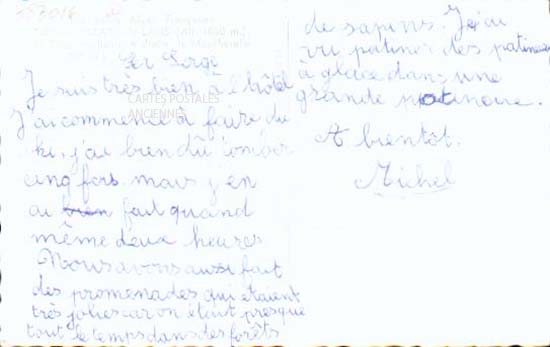 Je suis très bien à l'hôtel
J'ai commencé à faire du
ki, j'ai bien dû tomber
cinq fois mais j'en
ai bien fait quand
même deux heures
Nous avons aussi fait
des promenades qui étaient
très jolies car on était presque
tout le temps dans des forêts
de sapins. J'ai
vu patiner des patineurs
à glace dans une
grande patinoire.
A bientôt.
Michel
CARTES POSTALES
ANCIENNES